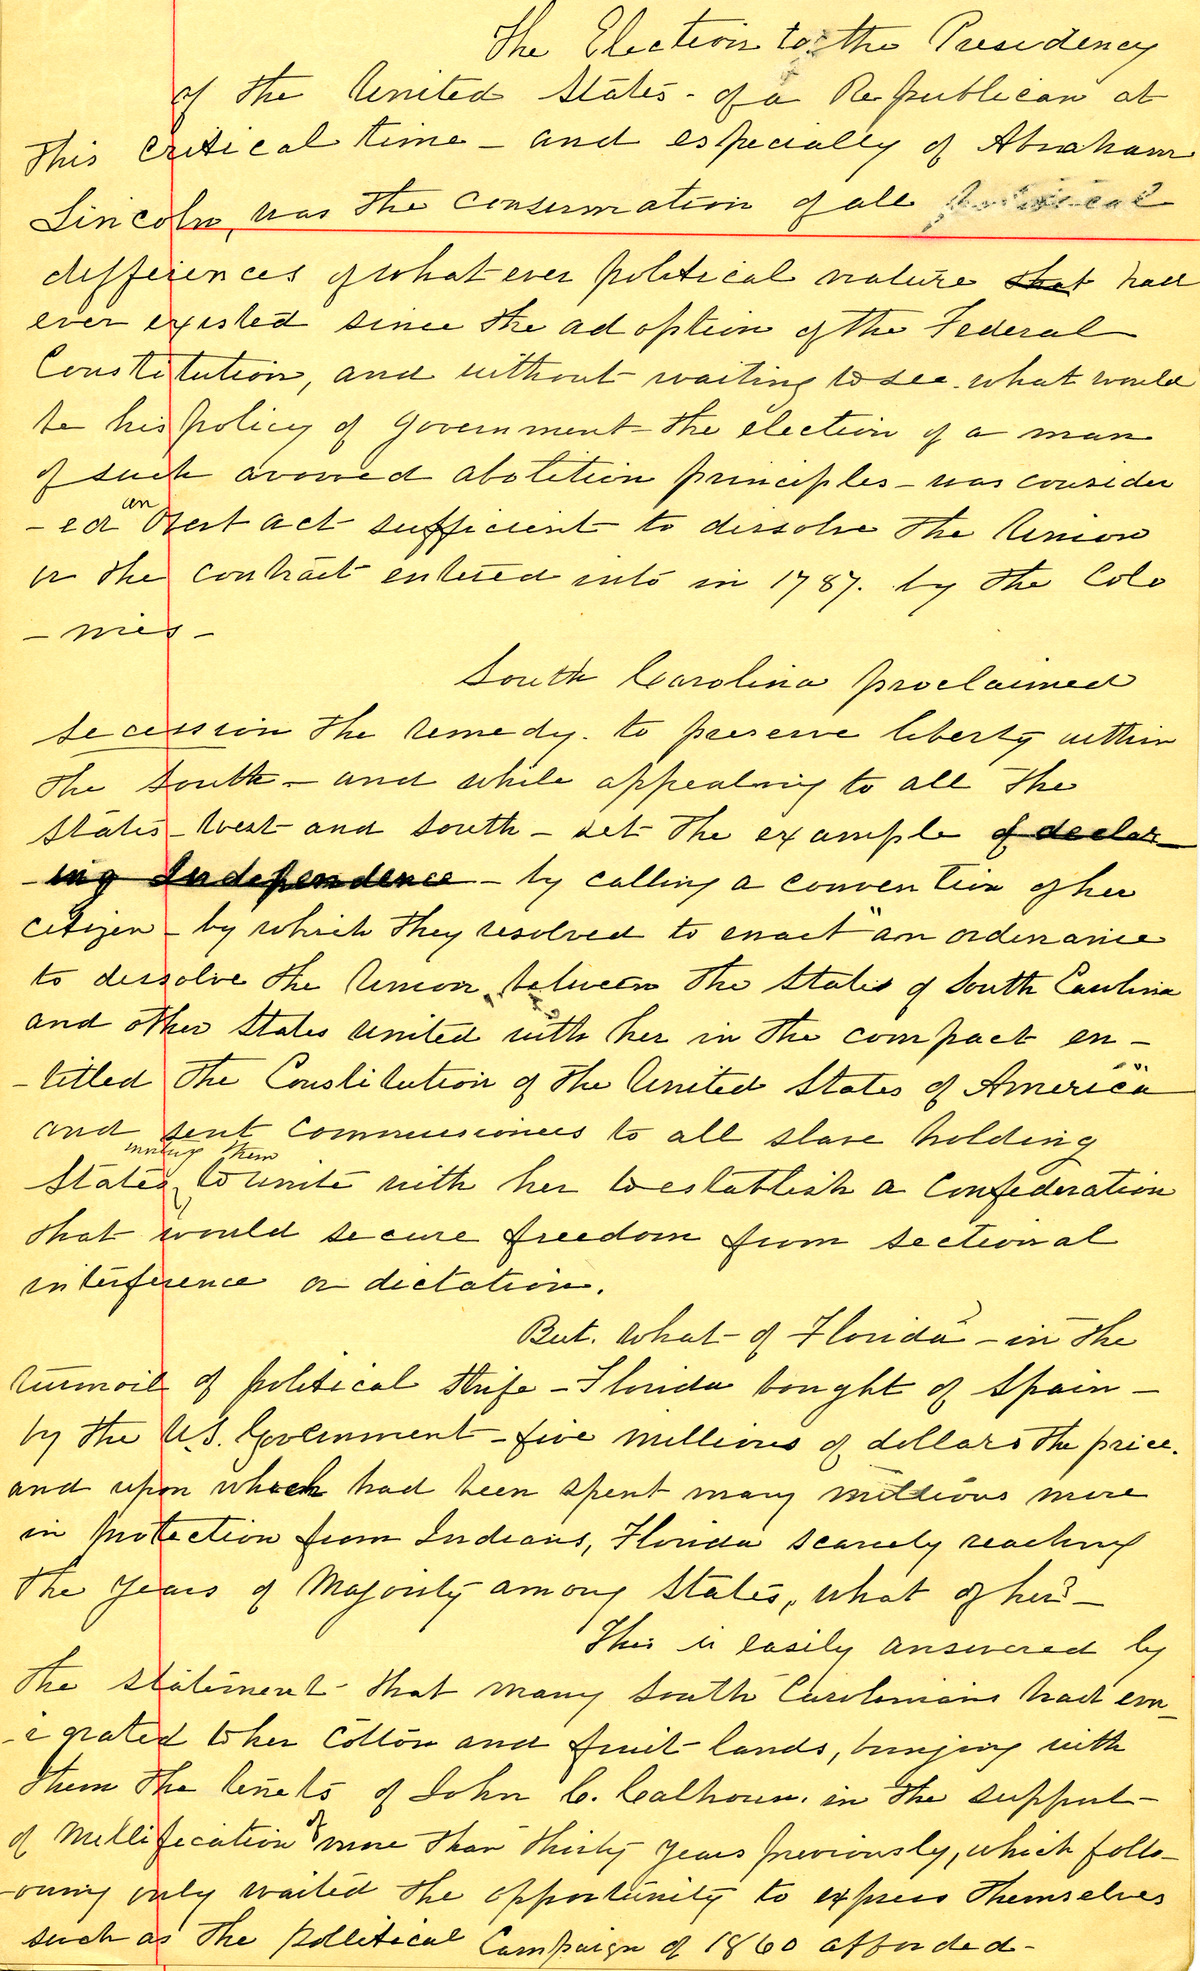 The Election to the Presidency
of the United States - of a Republican at
this critical time - and especially of Abraham
Lincoln, was the consummation of all political
differences of what ever political nature that had
ever existed since the adoption of the Federal
Constitution, and without waiting to see what would
be his policy of government - the election of a man
of such avowed abolition principles - was consider
- ed an Overt act sufficient to dissolve the Union
or the contract entered into in 1787. by the Colo
- nies -
South Carolina proclaimed
secession the remedy. to preserve liberty within
the South - and while appealing to all the
States - West and South - set the example of declar-
- ing Independence - by calling a convention of her
citizen - by which they resolved to enact "an ordinance
to dissolve the Union between the States of South Carolina
and other States united with her in the compact en-
- titled the Constitution of the United States of America"
and sent commissioners to all slave holding
inviting them
States to unite with her to establish a Confederation
that would secure freedom from sectional
interference or dictation.
But. What of Florida - in the
turmoil of political strife - Florida bought of Spain -
by the U.S. Government - five millions of dollars the price.
and upon which had been spent many millions more
in protection from Indians, Florida scarcely reaching
the years of Majority among States, what of her? -
This is easily answered by
the statement - that many South Carolinians had em-
- igrated to her cotton and fruit lands, bringing with
them the tenets of John C. Calhoun. in the support -
of Nullification of more than thirty years previously, which follo-
- owing only waited the opportunity to express themselves
such as the Political Campaign of 1860 afforded -